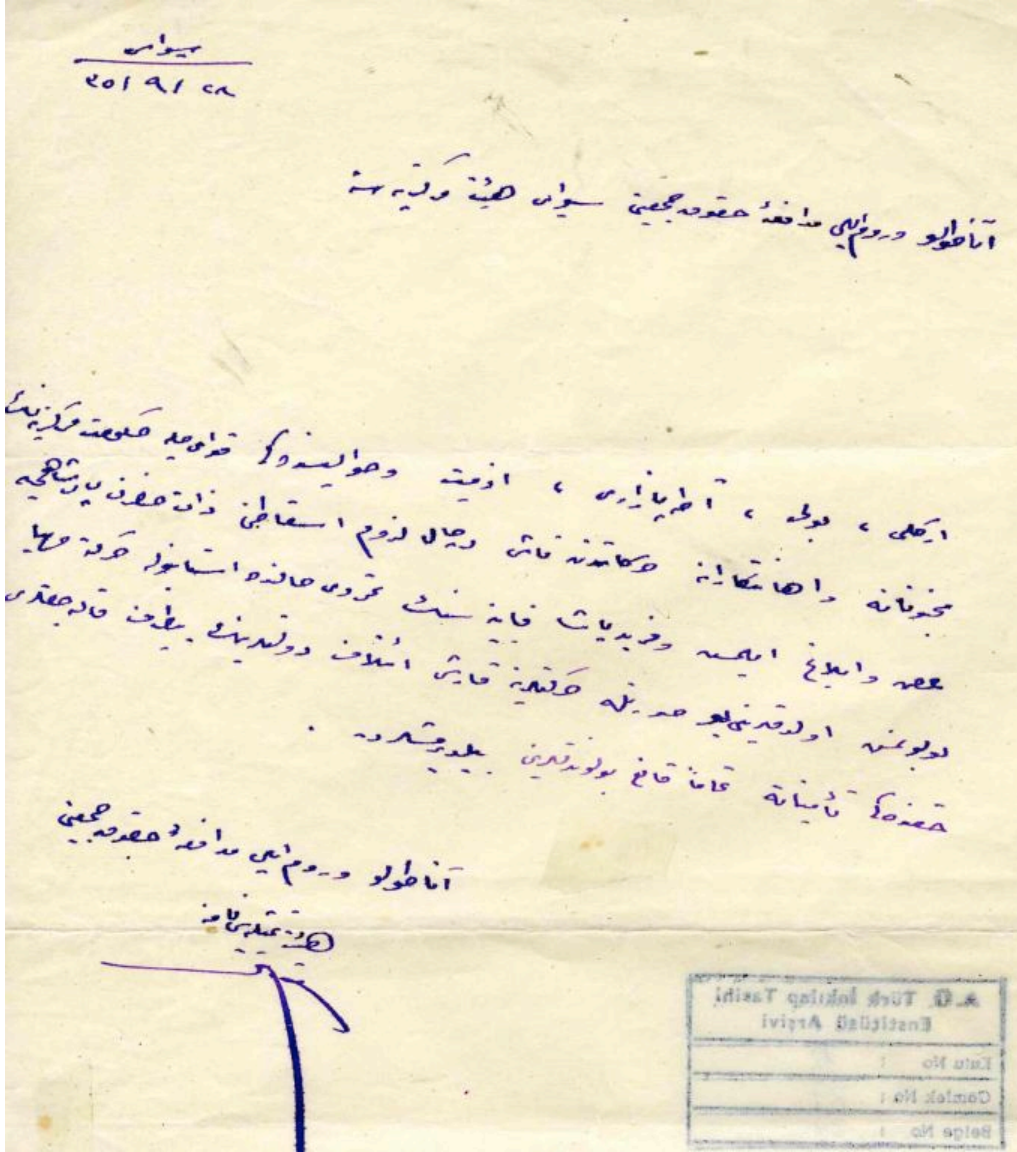 سيواس
٢٨ / ٩ / ٣٥
آناطولو و روم ايلی مدافعهٔ حقوق جمعيتی سيواس هيئت مركزيه سنه
اركلی ، بولی ، آطه پازاری ، ازميت و حواليسنده كی قوای مليه حكومت مركزيه نك
و اهانتكارانه حركاتندن ناشی درحال لزوم اسقاطنی ذات حضرت پادشاهی يه
عرض و ابلاغ ايلمش و فريد پاشا قابينه سنك تمردی حالنده استانبوله حركته مهيا
بولونمش اولدقلرينی بو صورتله حركتلرينه قارشی ائتلاف دولتلرينك بيطرف قاله جقلری
حقنده كی تأميناته تماماً قانع بولوندقلرينی بيلديرمشلردر .
آناطولو و روم ايلی مدافعهٔ حقوق جمعيتی
هيئت تمثيليه سی نامنه
A.Ü. Türk İnkılap Tarihi
Enstitüsü Arşivi
Kutu No :
Gömlek No :
Belge No :